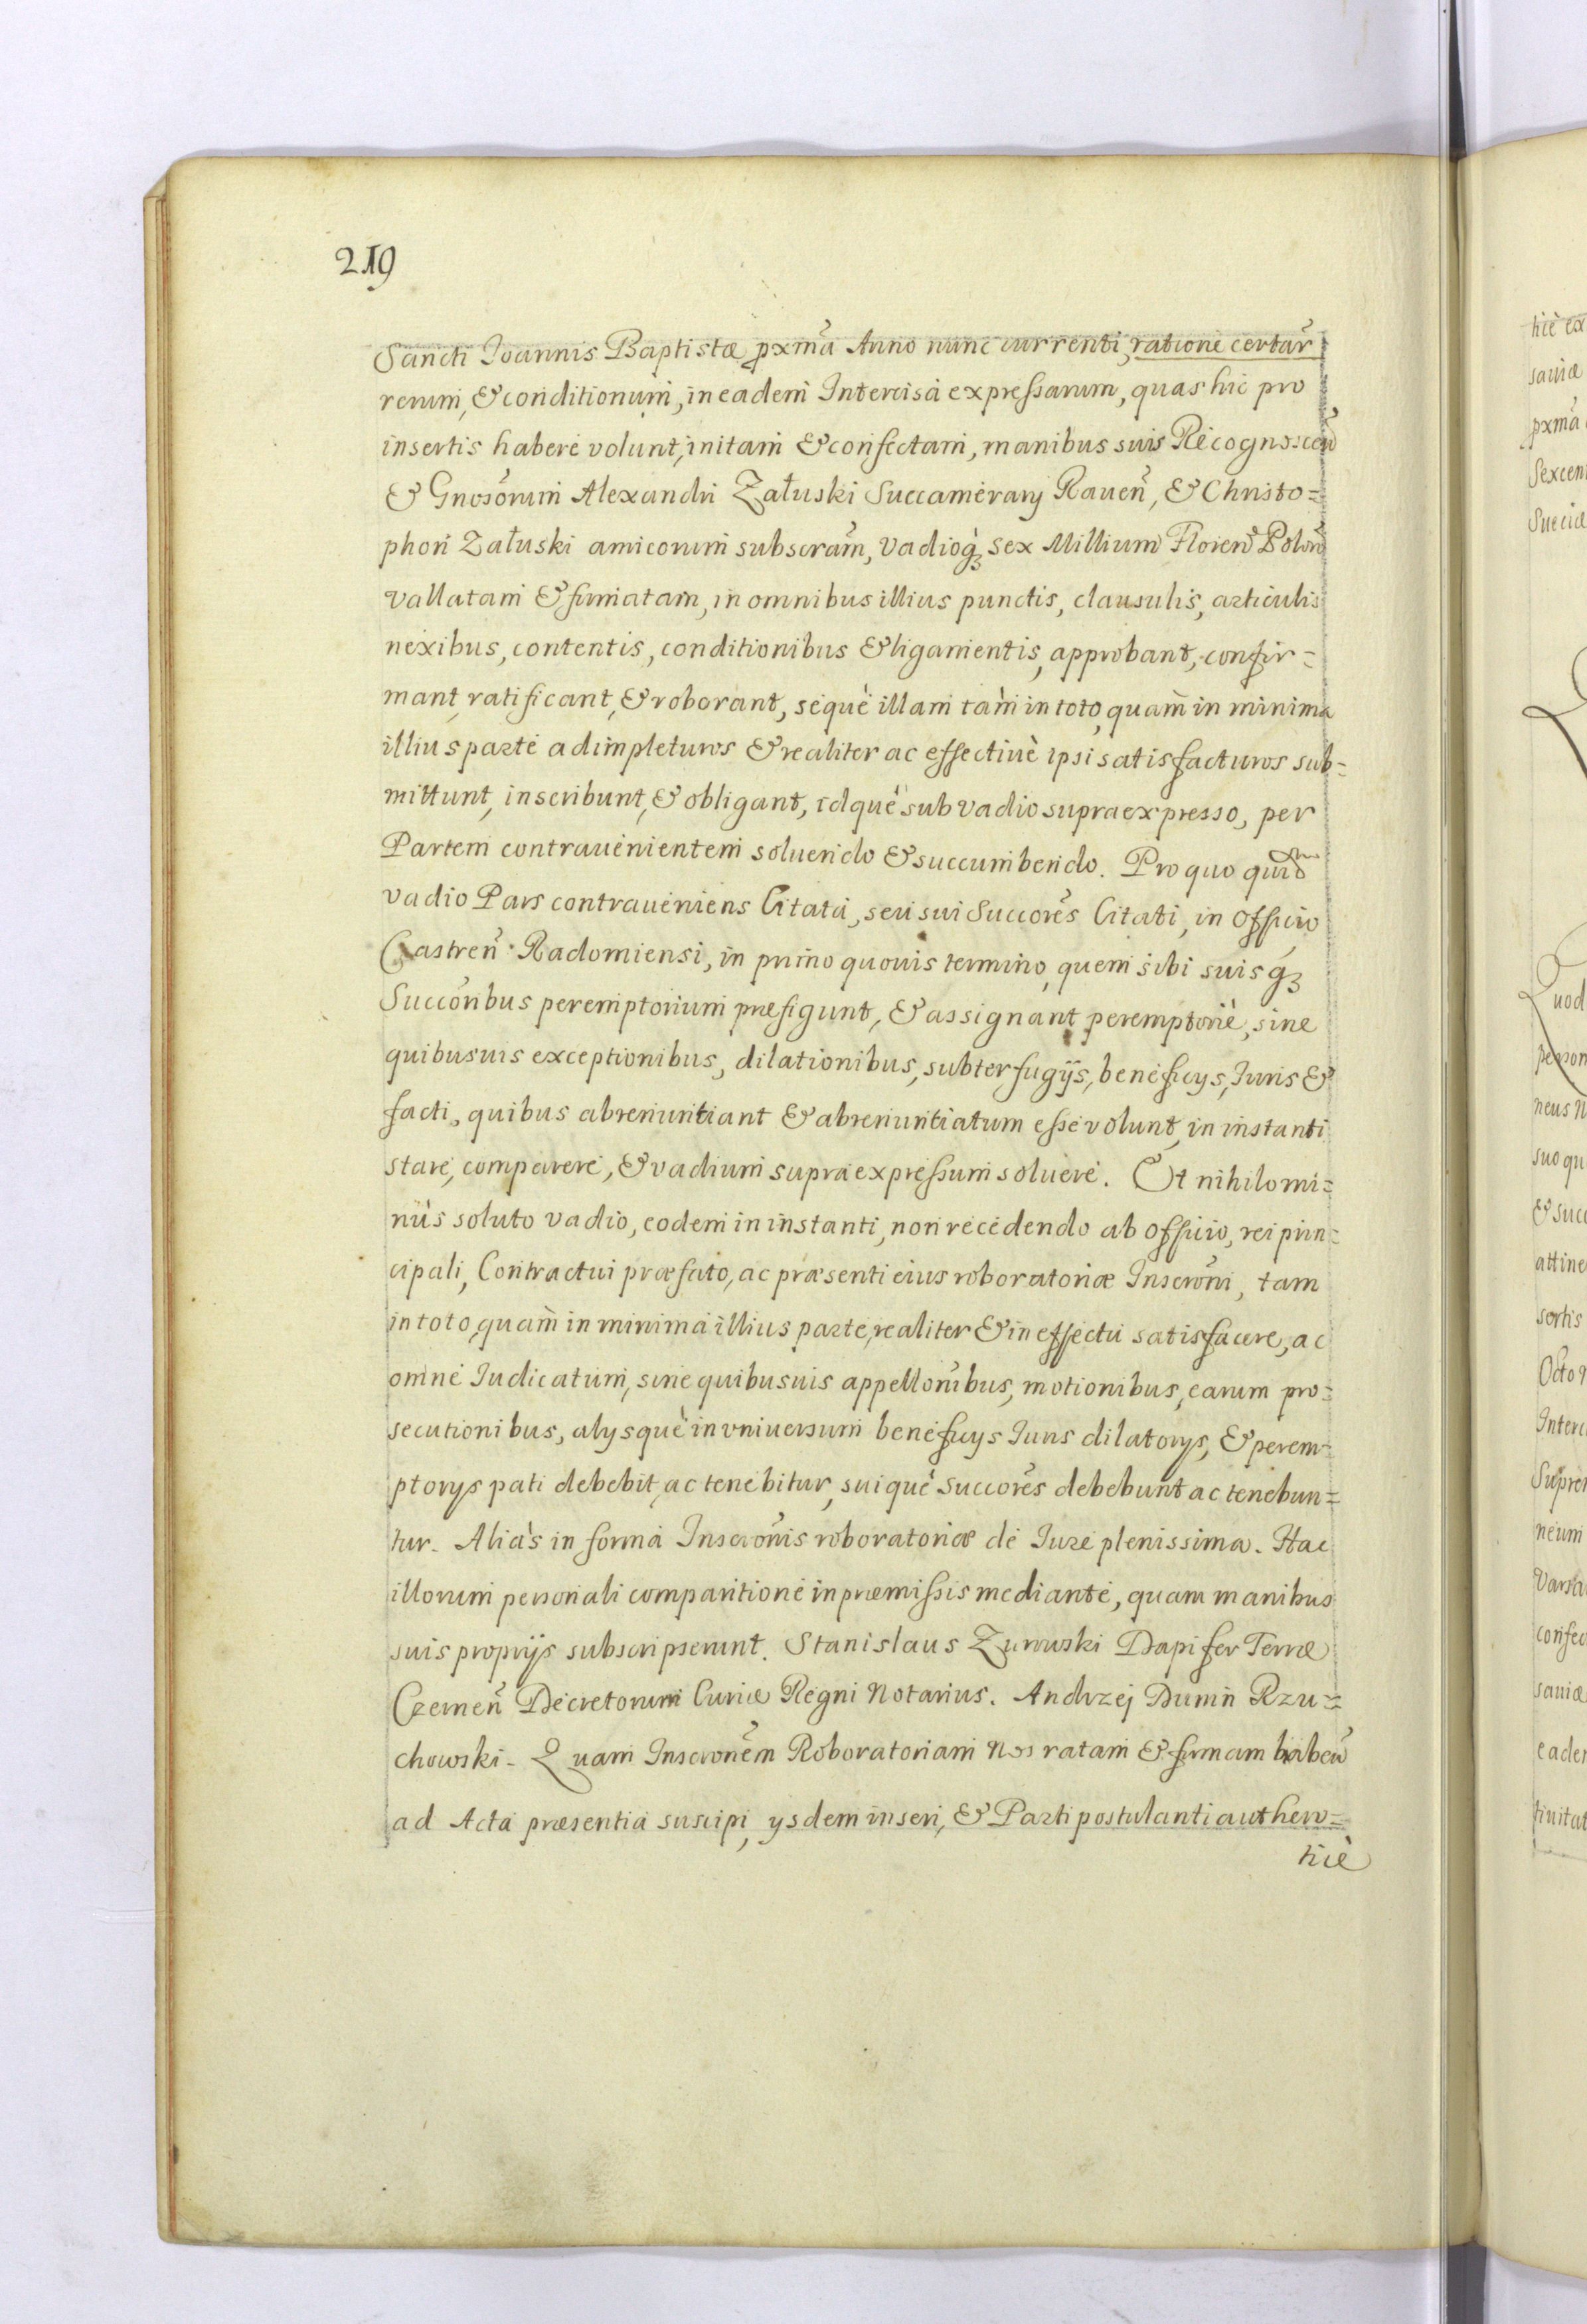 219
Sancti Joannis Baptistæ pxmã Anno nunc currenti, ratione certar̃
rerum, & conditionum, in eadem Intercisa expressarum, quas hic pro
insertis habere volunt, initam & confectam, manibus suis Recognoscen̄
& Gnosõrum Alexandri Załuski Succamerarij Rauen̄, & Christo=
phori Załuski amicorum subscrãm, vadioq́ sex Millium Floren̄ Polon̄
vallatam & firmatam, in omnibus illius punctis, clausulis, articulis
nexibus, contentis, conditionibus & ligamentis, approbant, confir=
mant, ratificant, & roborant, sequè illam tàm in toto, quam̀ in minima
illius parte adimpleturos & realiter ac effectiuè ipsi satisfacturos sub=
mittunt, inscribunt, & obligant, idquè sub vadio supraexpresso, per
Partem contrauenientem soluendo & succumbendo. Pro quo quid̃
vadio Pars contraueniens Citata, seu sui Succorẽs Citati, in Officio
Castren̄ Radomiensi, in primo quouis termino, quem sibi suisq́
Succorĩbus peremptorium præfigunt, & assignant peremptoriè, sine
quibusuis exceptionibus, dilationibus, subterfugijs, beneficijs, Iuris &
facti, quibus abrenuntiant & abrenuntiatum esse volunt, in instanti
stare, comparere, & vadium supra expressum soluere. Et nihilomi=
nùs soluto vadio, eodem in instanti, non recedendo ab officio, rei prin=
cipali, Contractui præfato, ac præsenti eius roboratoriæ Inscrõni, tam
in toto, quam̀ in minima illius parte, realiter & in effectu satisfacere, ac
omne Iudicatum, sine quibusuis appellonĩbus, motionibus, earum pro=
secutionibus, alijsquè in vniuersum beneficijs Iuris dilatorijs, & perem=
ptorijs pati debebit, ac tenebitur, suiquè Succorẽs debebunt ac tenebun=
tur. Aliàs in forma Inscrõnis roboratoriæ de Iure plenissima. Hac
illorum personali comparitione in præmissis mediante, quam manibus
suis proprijs subscripserunt. Stanislaus Zurowski Dapifer Terræ
Czernen̄ Decretorum Curiæ Regni Notarius. Andrzej Dunin Rzu=
chowski. Quam Inscronẽm Roboratoriam Nos ratam & firmam haben̄
ad Acta præsentia suscipi, ysdem inseri, & Parti postulanti authen=
ticè